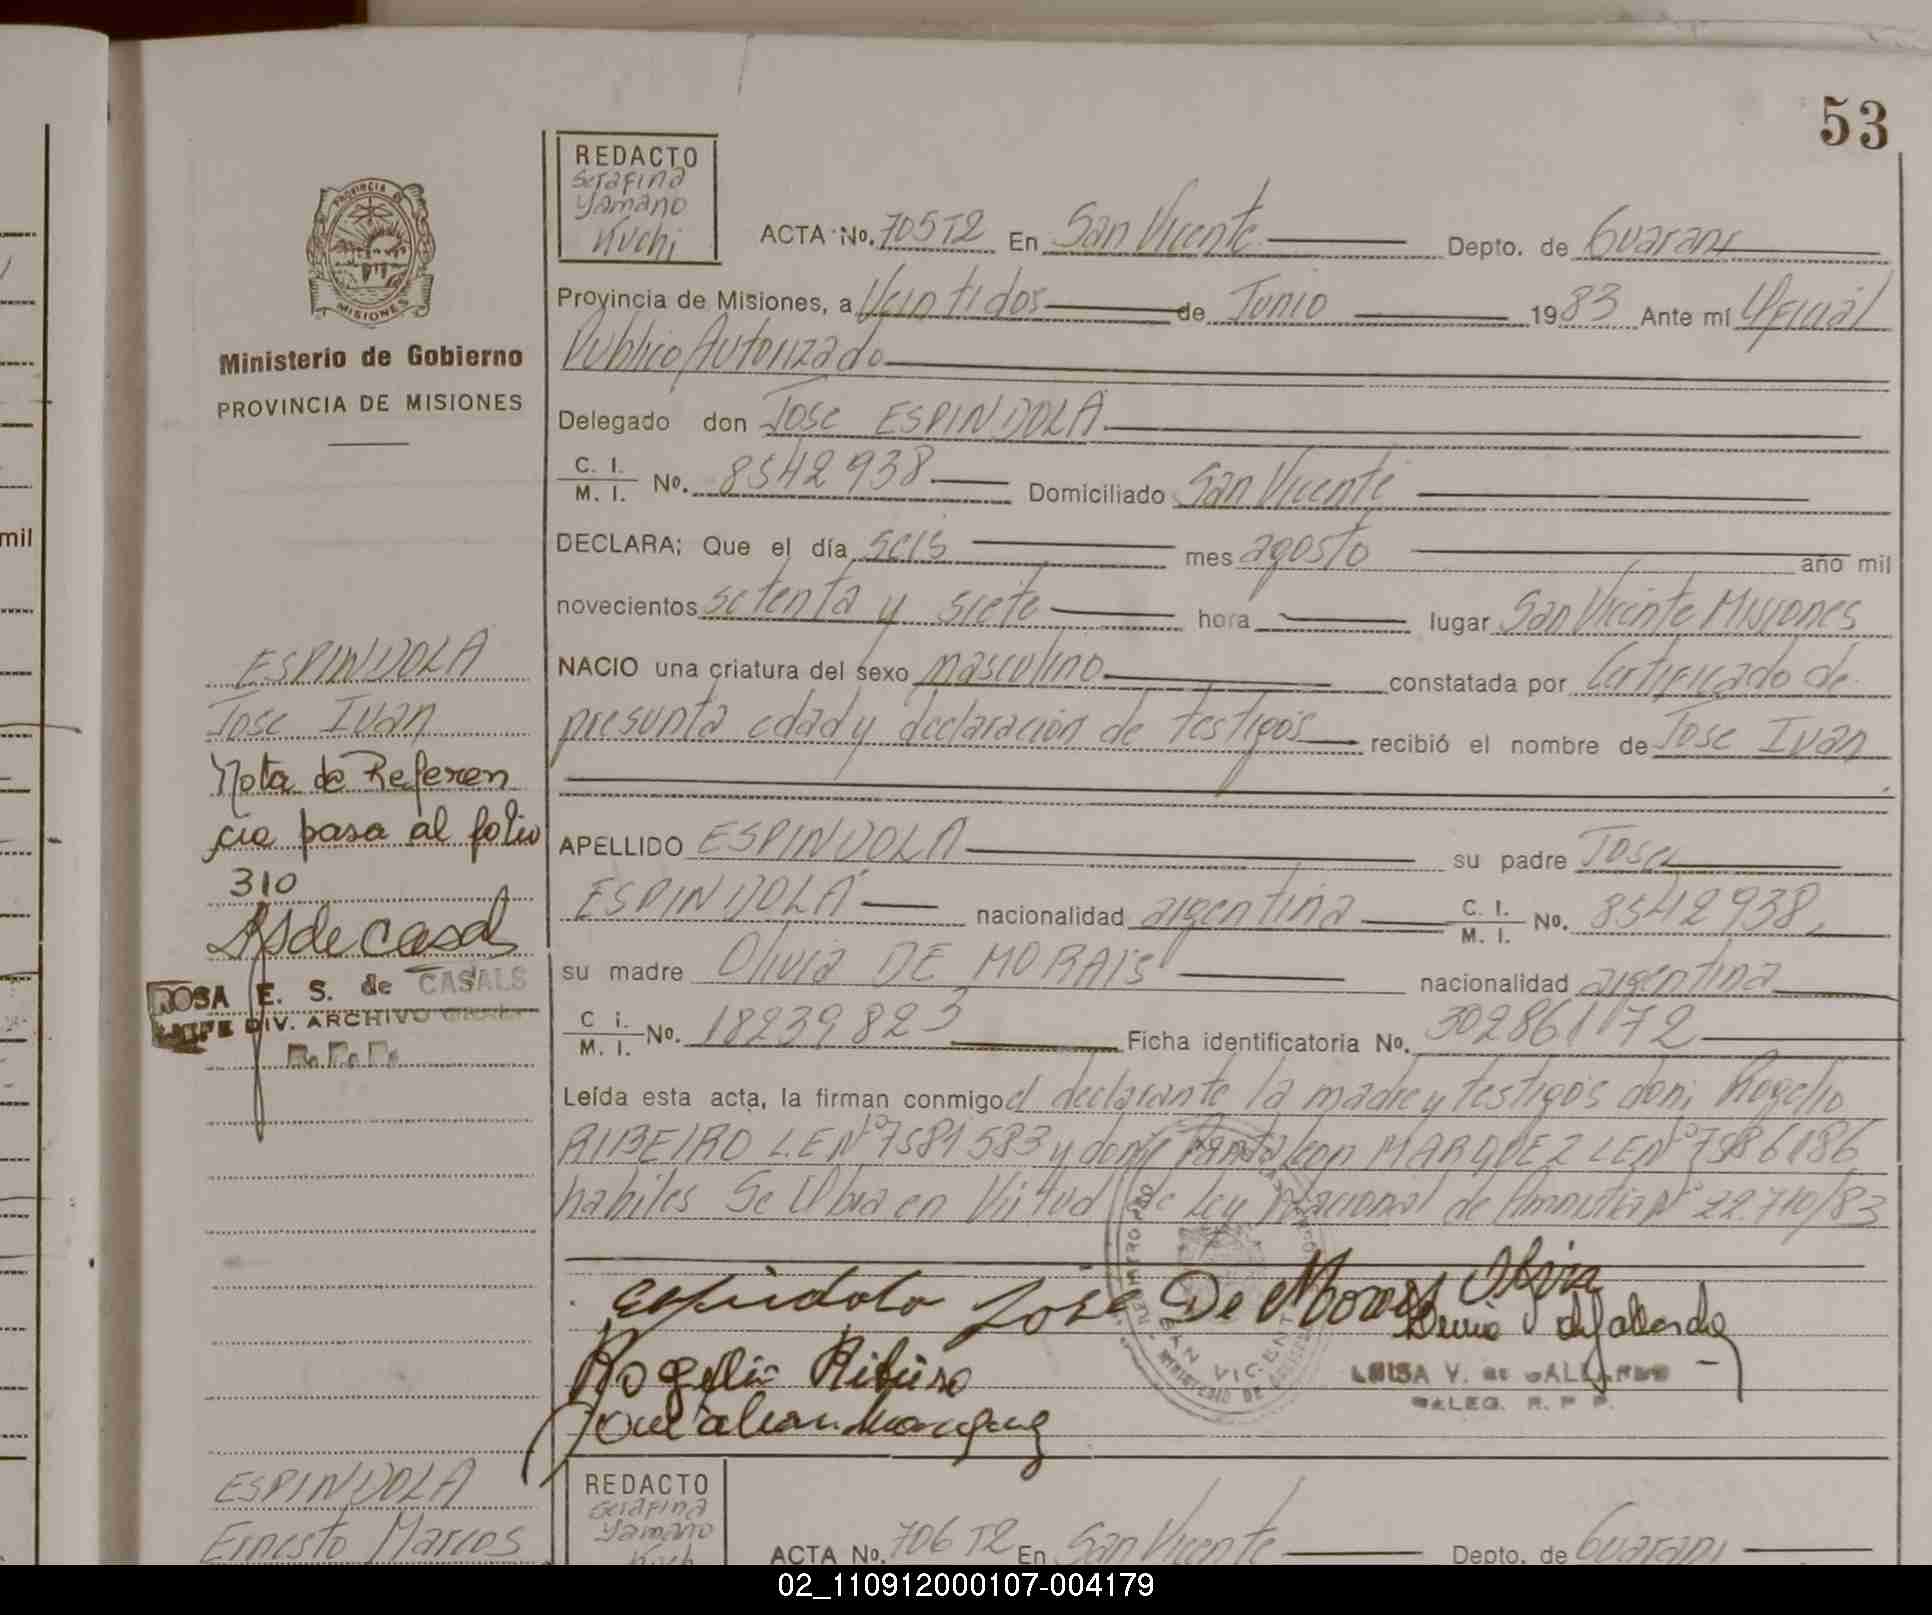 53
REDACTO
Serafina
Yamano
Kuchi
PROVINCIA DE
MISIONES
Ministerio de Gobierno
PROVINCIA DE MISIONES
ACTA No. 705T2 En San Vicente Depto. de Guarani
Provincia de Misiones, a Veintidos de Junio 1983 Ante mí Oficial
Publico Autorizado
Delegado don Jose ESPINDOLA
C. I.
M. I. No. 8542938 Domiciliado San Vicente
DECLARA: Que el día seis mes agosto año mil
novecientos setenta y siete hora lugar San Vicente Misiones
NACIO una criatura del sexo masculino constatada por Certificado de
presunta edad y declaración de testigos recibió el nombre de Jose Ivan
APELLIDO ESPINDOLA su padre Jose
ESPINDOLA nacionalidad argentina C. I.
M. I. No. 8542938
su madre Olivia DE MORAIS nacionalidad argentina
C i.
M. I. No. 18239823 Ficha identificatoria No. 302861172
Leída esta acta, la firman conmigo el declarante la madre y testigos don: Rogelio
RIBEIRO L.E Nº 7581583 y don: Pantaleon MARQUEZ LE Nº 7586186
habiles Se Labra en Virtud de Ley Nacional de Amnistia Nº 22.710/83
Espindola José De Morais Olivia
Rogelio Ribeiro
LUISA V. de GALLARDO
DELEG. R. P. P.
SAN VICENTE
ESPINDOLA
Jose Ivan
Nota de Referen
cia pasa al folio
310
RSdeCasals
ROSA E. S. de CASALS
JEFE DIV. ARCHIVO
R. P. P.
mil
ESPINDOLA
Ernesto Marcos
REDACTO
Serafina
Yamano
Kuch
ACTA No. 706T2 En San Vicente Depto. de Guarani
02_110912000107-004179